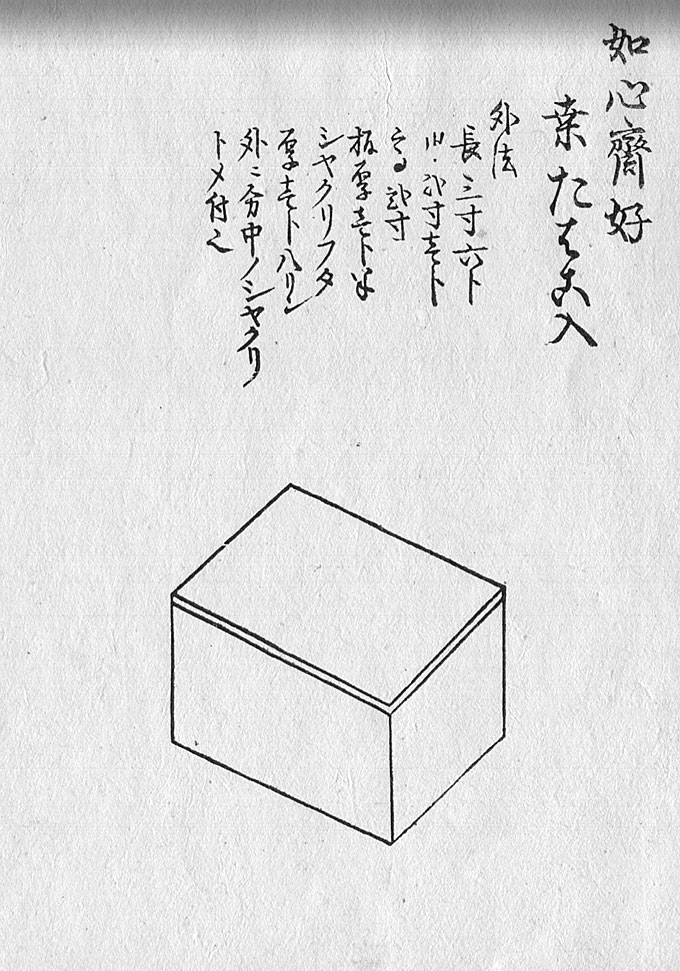 如心齋好
桒たはこ入
外法
長三寸六ト
巾弐寸壱ト
高弐寸
板厚壱ト半
シヤクリフタ
厚壱ト八リン
外ニ分中ノシヤクリ
トメ付也